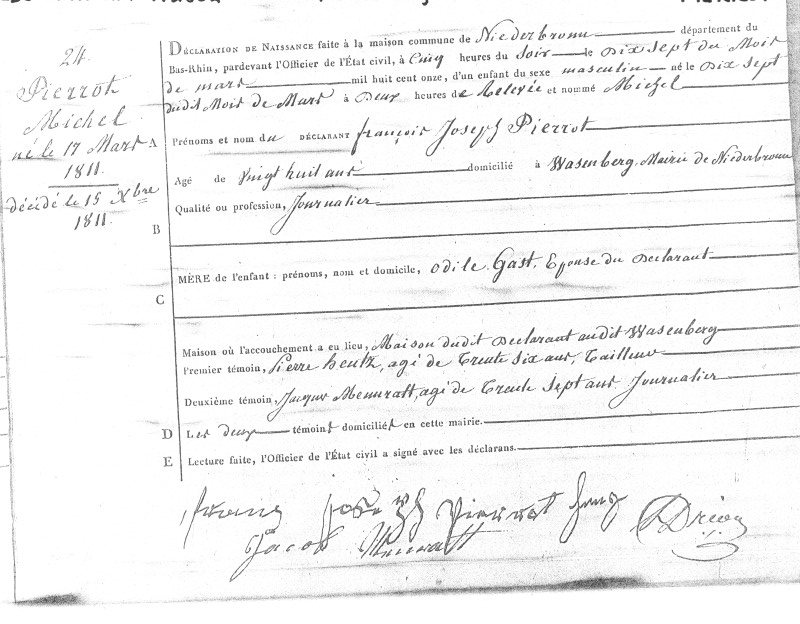 24.
Pierrot
Michel
né le 17 Mars
1811.
décédé le 15 Xbre
1811.
DÉCLARATION DE NAISSANCE faite à la maison commune de Niederbronn département du
Bas-Rhin, pardevant l'Officier de l'État civil, à Cinq heures du Soir le Dix Sept du Mois
de mars mil huit cent onze, d'un enfant du sexe masculin né le Dix Sept
dudit Mois de Mars à Deux heures de Relevée et nommé Michel
A Prénoms et nom du DÉCLARANT françois Joseph Pierrot
Agé de Vingt huit ans domicilié à Wasenberg, Mairie de Niederbronn
Qualité ou profession, Journalier
B
MÈRE de l'enfant : prénoms, nom et domicile, Odile Gast, Epouse du Declarant
C
Maison où l'accouchement a eu lieu, Maison dudit Declarant audit Wasenberg
Premier témoin, Pierre heutz, agé de Trente Six ans, Tailleur
Deuxième témoin, Jacques Mennratt, agé de Trente Sept ans Journalier
D Les deux témoins domiciliés en cette mairie.
E Lecture faite, l'Officier de l'État civil a signé avec les déclarans.
franz Joseph Pierrot
Jacob Mennratt